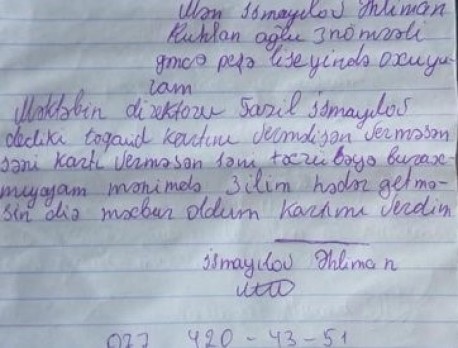 Mən İsmayılov Əhliman
Ruhlan oğlu 3 nömrəli
gəncə peşə liseyində oxuyu-
ram
Məktəbin direktoru Fazil İsmayılov
dediki təqaud kartını vermalisən verməsən
səni kartı verməsən səni təcrubəyə burax-
mıyacam mənimdə 3 ilim hədər getmə-
sin diə məcbur oldum kartımı verdim
İsmayılov Əhliman
077 420-43-51